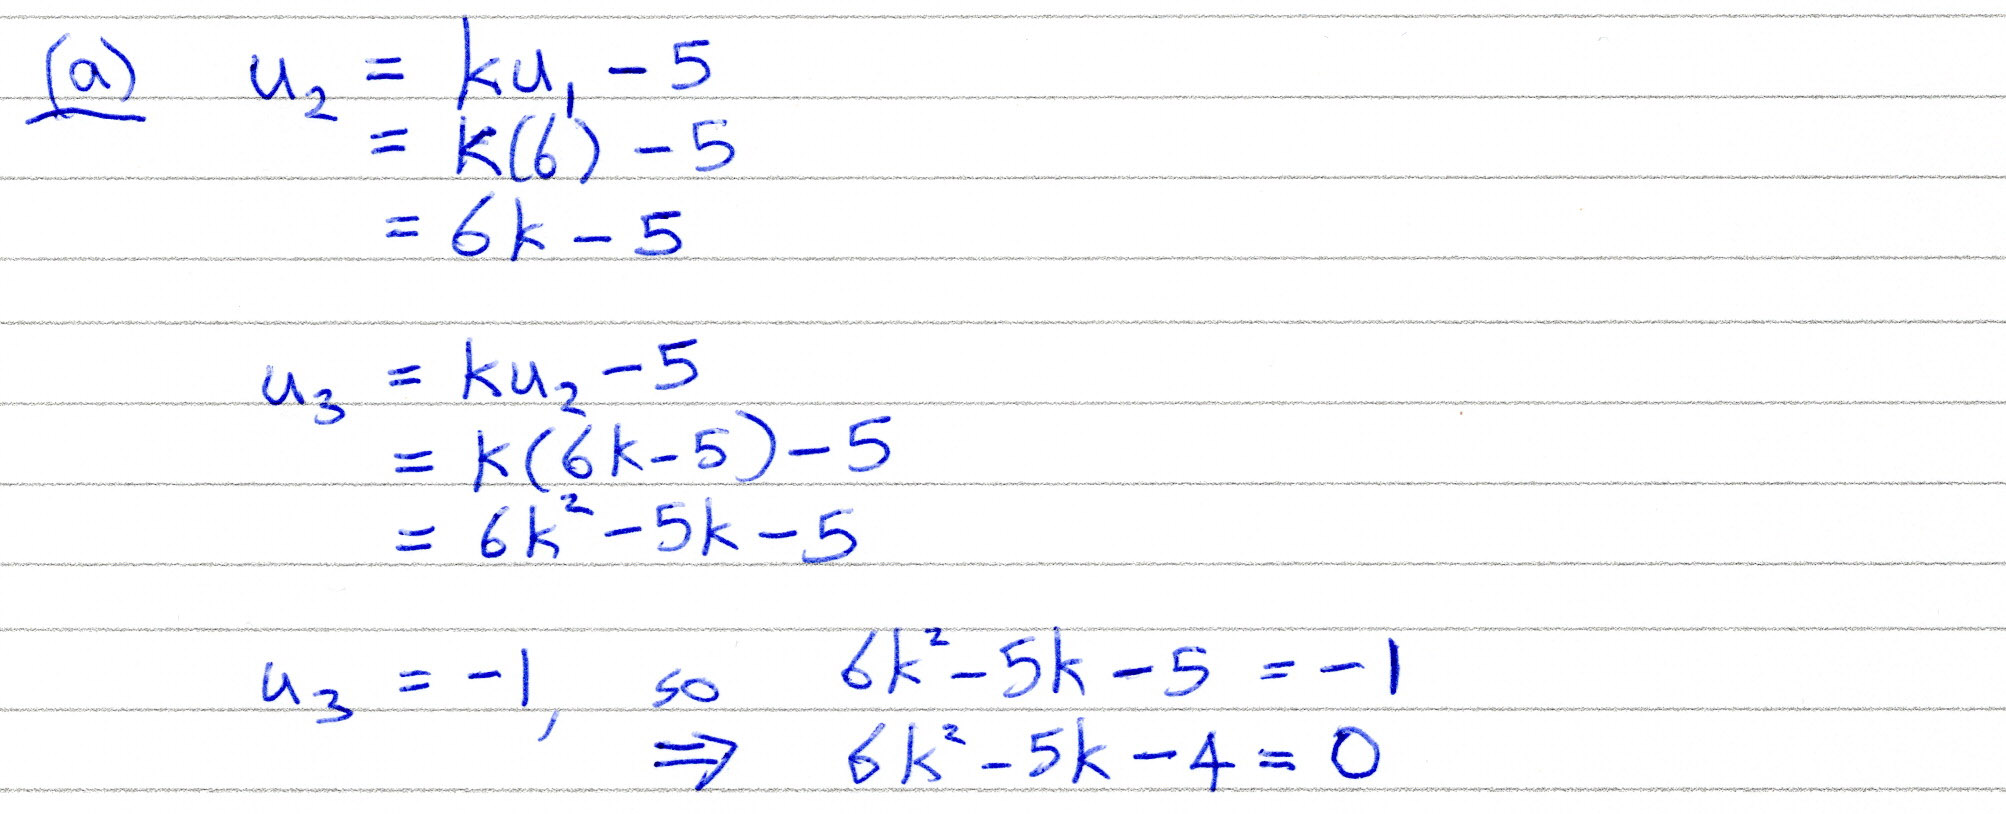 (a) u₂ = ku₁ - 5
= k(6) - 5
= 6k - 5
u₃ = ku₂ - 5
= k(6k-5) - 5
= 6k² - 5k - 5
u₃ = -1, so 6k² - 5k - 5 = -1
⇒ 6k² - 5k - 4 = 0